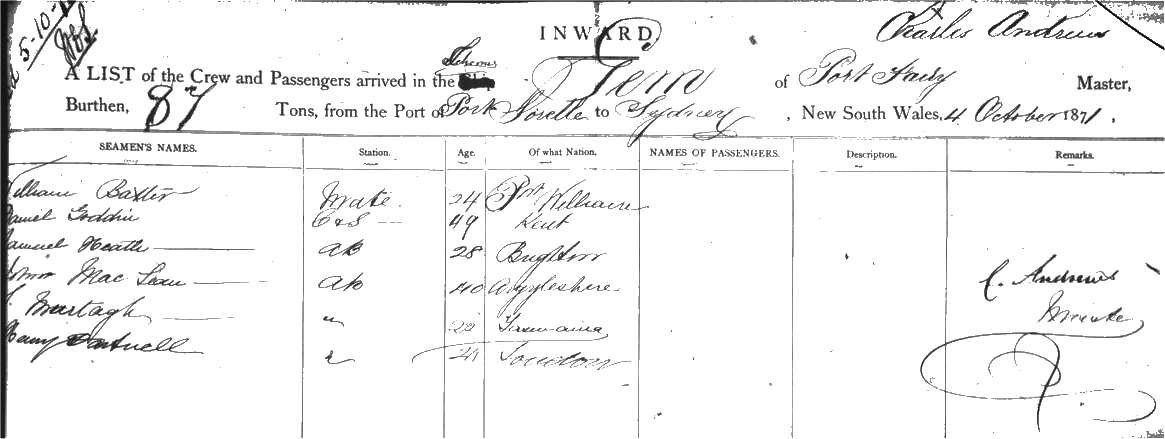 5-10-
INWARD
Charles Andrews
A LIST of the Crew and Passengers arrived in the Schooner Tern of Port Fairy Master,
Burthen, 87 Tons, from the Port of Port to Sydney, New South Wales, 4 October 1871.
SEAMEN'S NAMES. Station. Age. Of what Nation. NAMES OF PASSENGERS. Description. Remarks.
William Baxter Mate. 24 Port William
Daniel C&S 49 Kent
Samuel Heath AB 28 Brighton
John Mac Lean AB 40 Argyleshire
C. Andrews
Murtagh " 22 Tasmania
Harry " 21 London